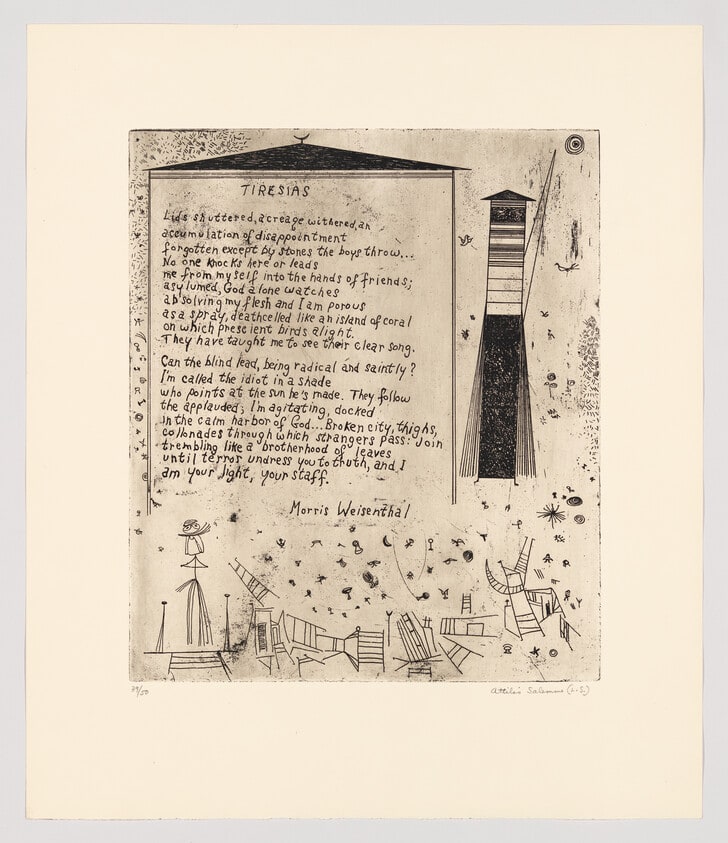 TIRESIAS
Lids shuttered, acreage withered, an
accumulation of disappointment
forgotten except by stones the boys throw...
No one knocks here or leads
me from myself into the hands of friends;
asylumed, God alone watches
absolving my flesh and I am porous
as a spray, deathcelled like an island of coral
on which prescient birds alight.
They have taught me to see their clear song.
Can the blind lead, being radical and saintly?
I'm called the idiot in a shade
who points at the sun he's made. They follow
the applauded; I'm agitating, docked
in the calm harbor of God... Broken city, thighs,
collonades through which strangers pass: Join
trembling like a brotherhood of leaves
until terror undress you to truth, and I
am your light, your staff.
Morris Weisenthal
39/50
Attilio Salemme (L.S.)